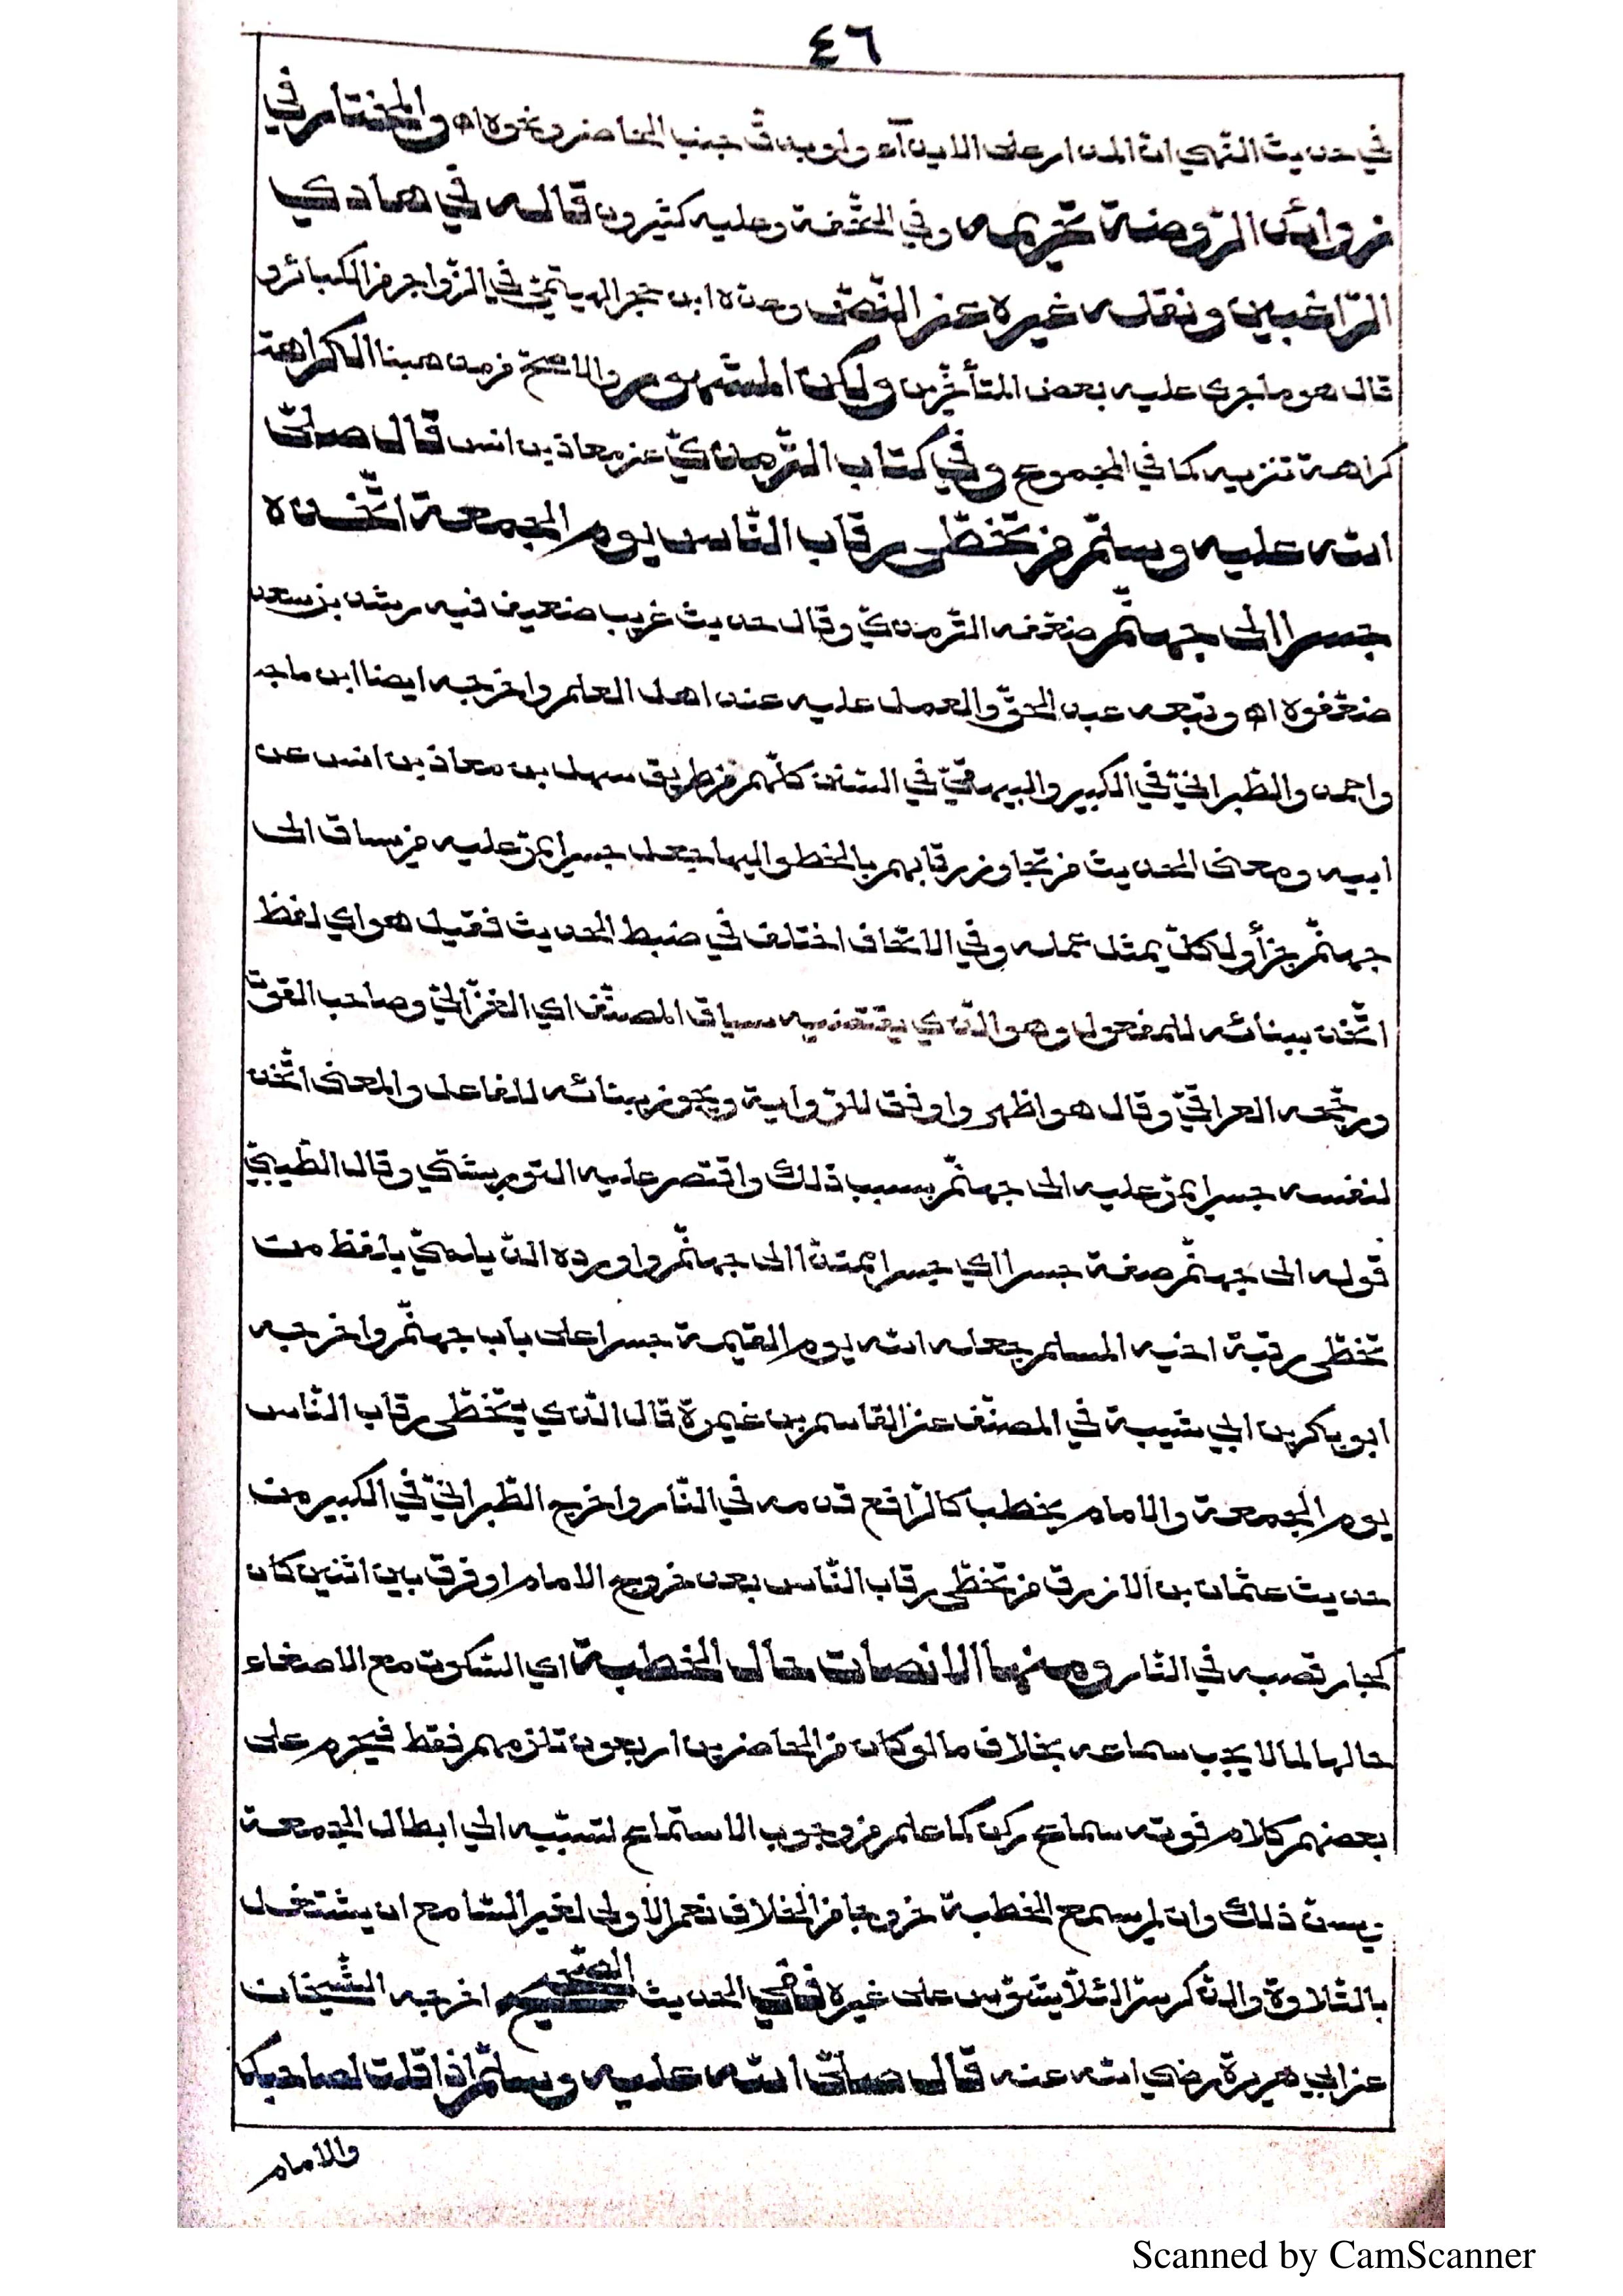 ٤٦
في حديث النهي ان المدار على الايذآء ولو بدق جنب الحاضر ونحوه اه والمختار في
زوائد الرّوضة تحريمه وفي التّحفة وعليه كثيرون قاله في هادي
الرّاغبين ونقله غيره عن النّصّ وعدّه ابن حجر الهيتميّ في الزّواجر من الكبائر و
قال هو ما جرى عليه بعض المتأخّرين ولكن المشهور والاصحّ من مذهبنا الكراهة
كراهة تنزيه كما في المجموع وفي كتاب التّرمذيّ عن معاذ بن انس قال صلّى
الله عليه وسلّم من تخطّى رقاب النّاس يوم الجمعة اتّخذه
جسرا الى جهنّم ضعّفه التّرمذيّ وقال حديث غريب ضعيف فيه رشد بن سعد
ضعّفوه اه وتبعه عبد الحقّ والعمل عليه عند اهل العلم واخرجه ايضا ابن ماجه
واحمد والطّبرانيّ في الكبير والبيهقيّ في السّنن كلّهم من طريق سهل بن معاذ بن انس عن
ابيه ومعنى الحديث من تجاوز رقابهم بالخطو اليها جعل جسرا يمرّ عليه من يساق الى
جهنّم جزاء وليكلّ بمثل عمله وفي الاتحاف اختلف في ضبط الحديث فقيل هو اي لفظ
اتّخذ ببنائه للمفعول وهو الّذي يقتضيه سياق المصنّف اي الغزّاليّ وصاحب القوت
ورجّحه العراقيّ وقال هو اظهر واوفق للرّواية ويجوز ببنائه للفاعل والمعنى اتّخذ
لنفسه جسرا يمرّ عليه الى جهنّم بسبب ذلك واقتصر عليه التوربشتي وقال الطّيبيّ
قوله الى جهنّم صفة جسرا اي جسرا ممتدّا الى جهنّم واورده الدّيلميّ بلفظ من
تخطّى رقبة اخيه المسلم جعله الله يوم القيمة جسرا على باب جهنّم واخرجه
ابو بكر بن ابي شيبة في المصنّف عن القاسم بن مخيمرة قال الّذي يتخطّى رقاب النّاس
يوم الجمعة والامام يخطب كالرّافع قدمه في النّار واخرج الطّبرانيّ في الكبير من
حديث عثمان بن الازرق من تخطّى رقاب النّاس بعد خروج الامام او فرق بين اثنين كان
كجار قصبه في النّار ومنها الانصات حال الخطبة اي السّكوت مع الاصغاء
حالها لما لا يجب سماعه بخلاف ما لو كان من الحاضرين اربعون تلزمهم فقط فيحرم على
بعضهم كلام فوته سماع ركن كما علم من وجوب الاستماع لتسبّبه الى ابطال الجمعة
يسن ذلك وان لم يسمع الخطبة خروجا من الخلاف نعم الاولى لغير السّامع ان يشتغل
بالتّلاوة والذّكر سرّا لئلّا يشوّش على غيره ففي الحديث الصّحيح اخرجه الشّيخان
عن ابي هريرة رضي الله عنه قال صلّى الله عليه وسلّم اذا قلت لصاحبك
والامام
Scanned by CamScanner